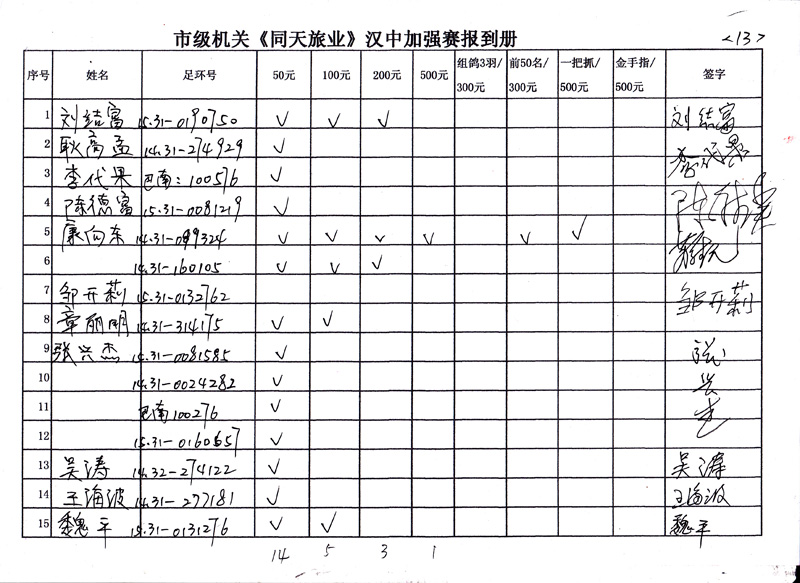 市级机关《同天旅业》汉中加强赛报到册 <13>
序号 姓名 足环号 50元 100元 200元 500元 组鸽3羽/300元 前50名/300元 一把抓/500元 金手指/500元 签字
1 刘结富 15.31-0190750 ✓ ✓ ✓ 刘结富
2 耿高孟 14.31-274929 ✓
3 李代果 巴南:100576 ✓
4 陈德富 15.31-0081219 ✓
5 康向东 14.31-099324 ✓ ✓ ✓ ✓ ✓ ✓
6 14.31-160105 ✓ ✓ ✓
7 邹开莉 15.31-0132762 邹开莉
8 章丽明 14.31-314175 ✓ ✓
9 张兴杰 15.31-0081585 ✓ 张
10 14.31-0024282 ✓ 兴
11 巴南100276 ✓ 杰
12 15.31-0160657 ✓
13 吴涛 14.32-274122 ✓ 吴涛
14 王海波 14.31-277181 ✓ 王海波
15 魏平 15.31-0131276 ✓ ✓ 魏平
14 5 3 1